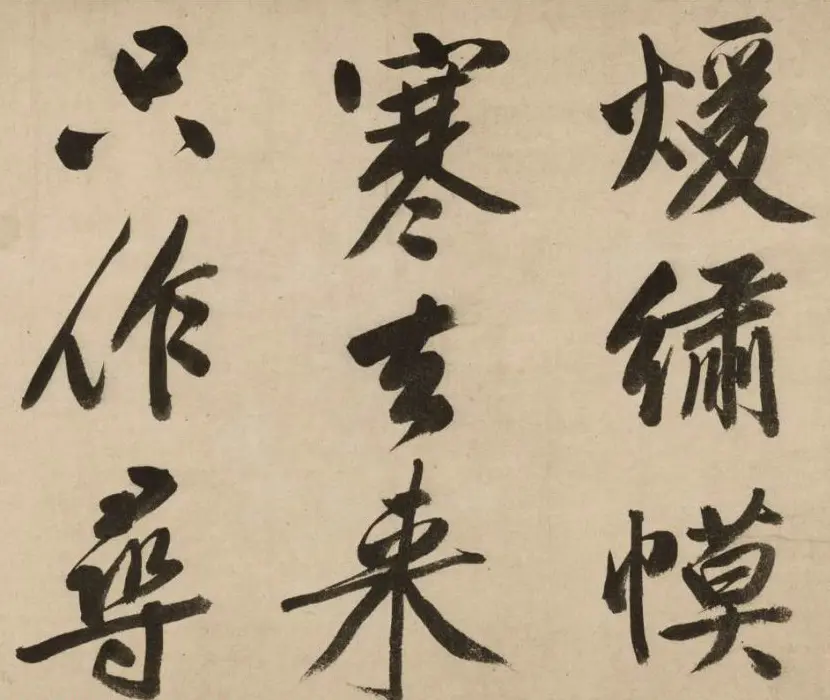 煖繡幙
寒去来
只作尋